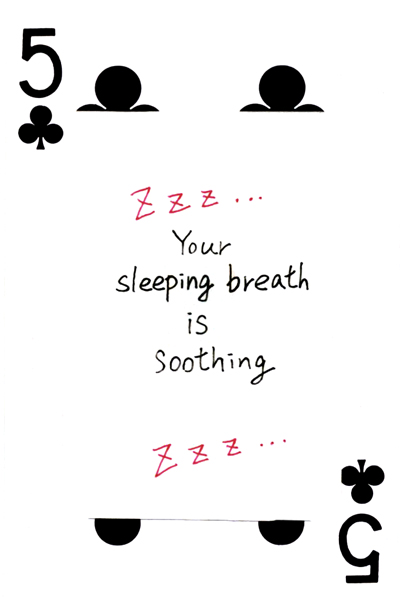 5
Zzz...
Your
sleeping breath
is
Soothing
Zzz...
5